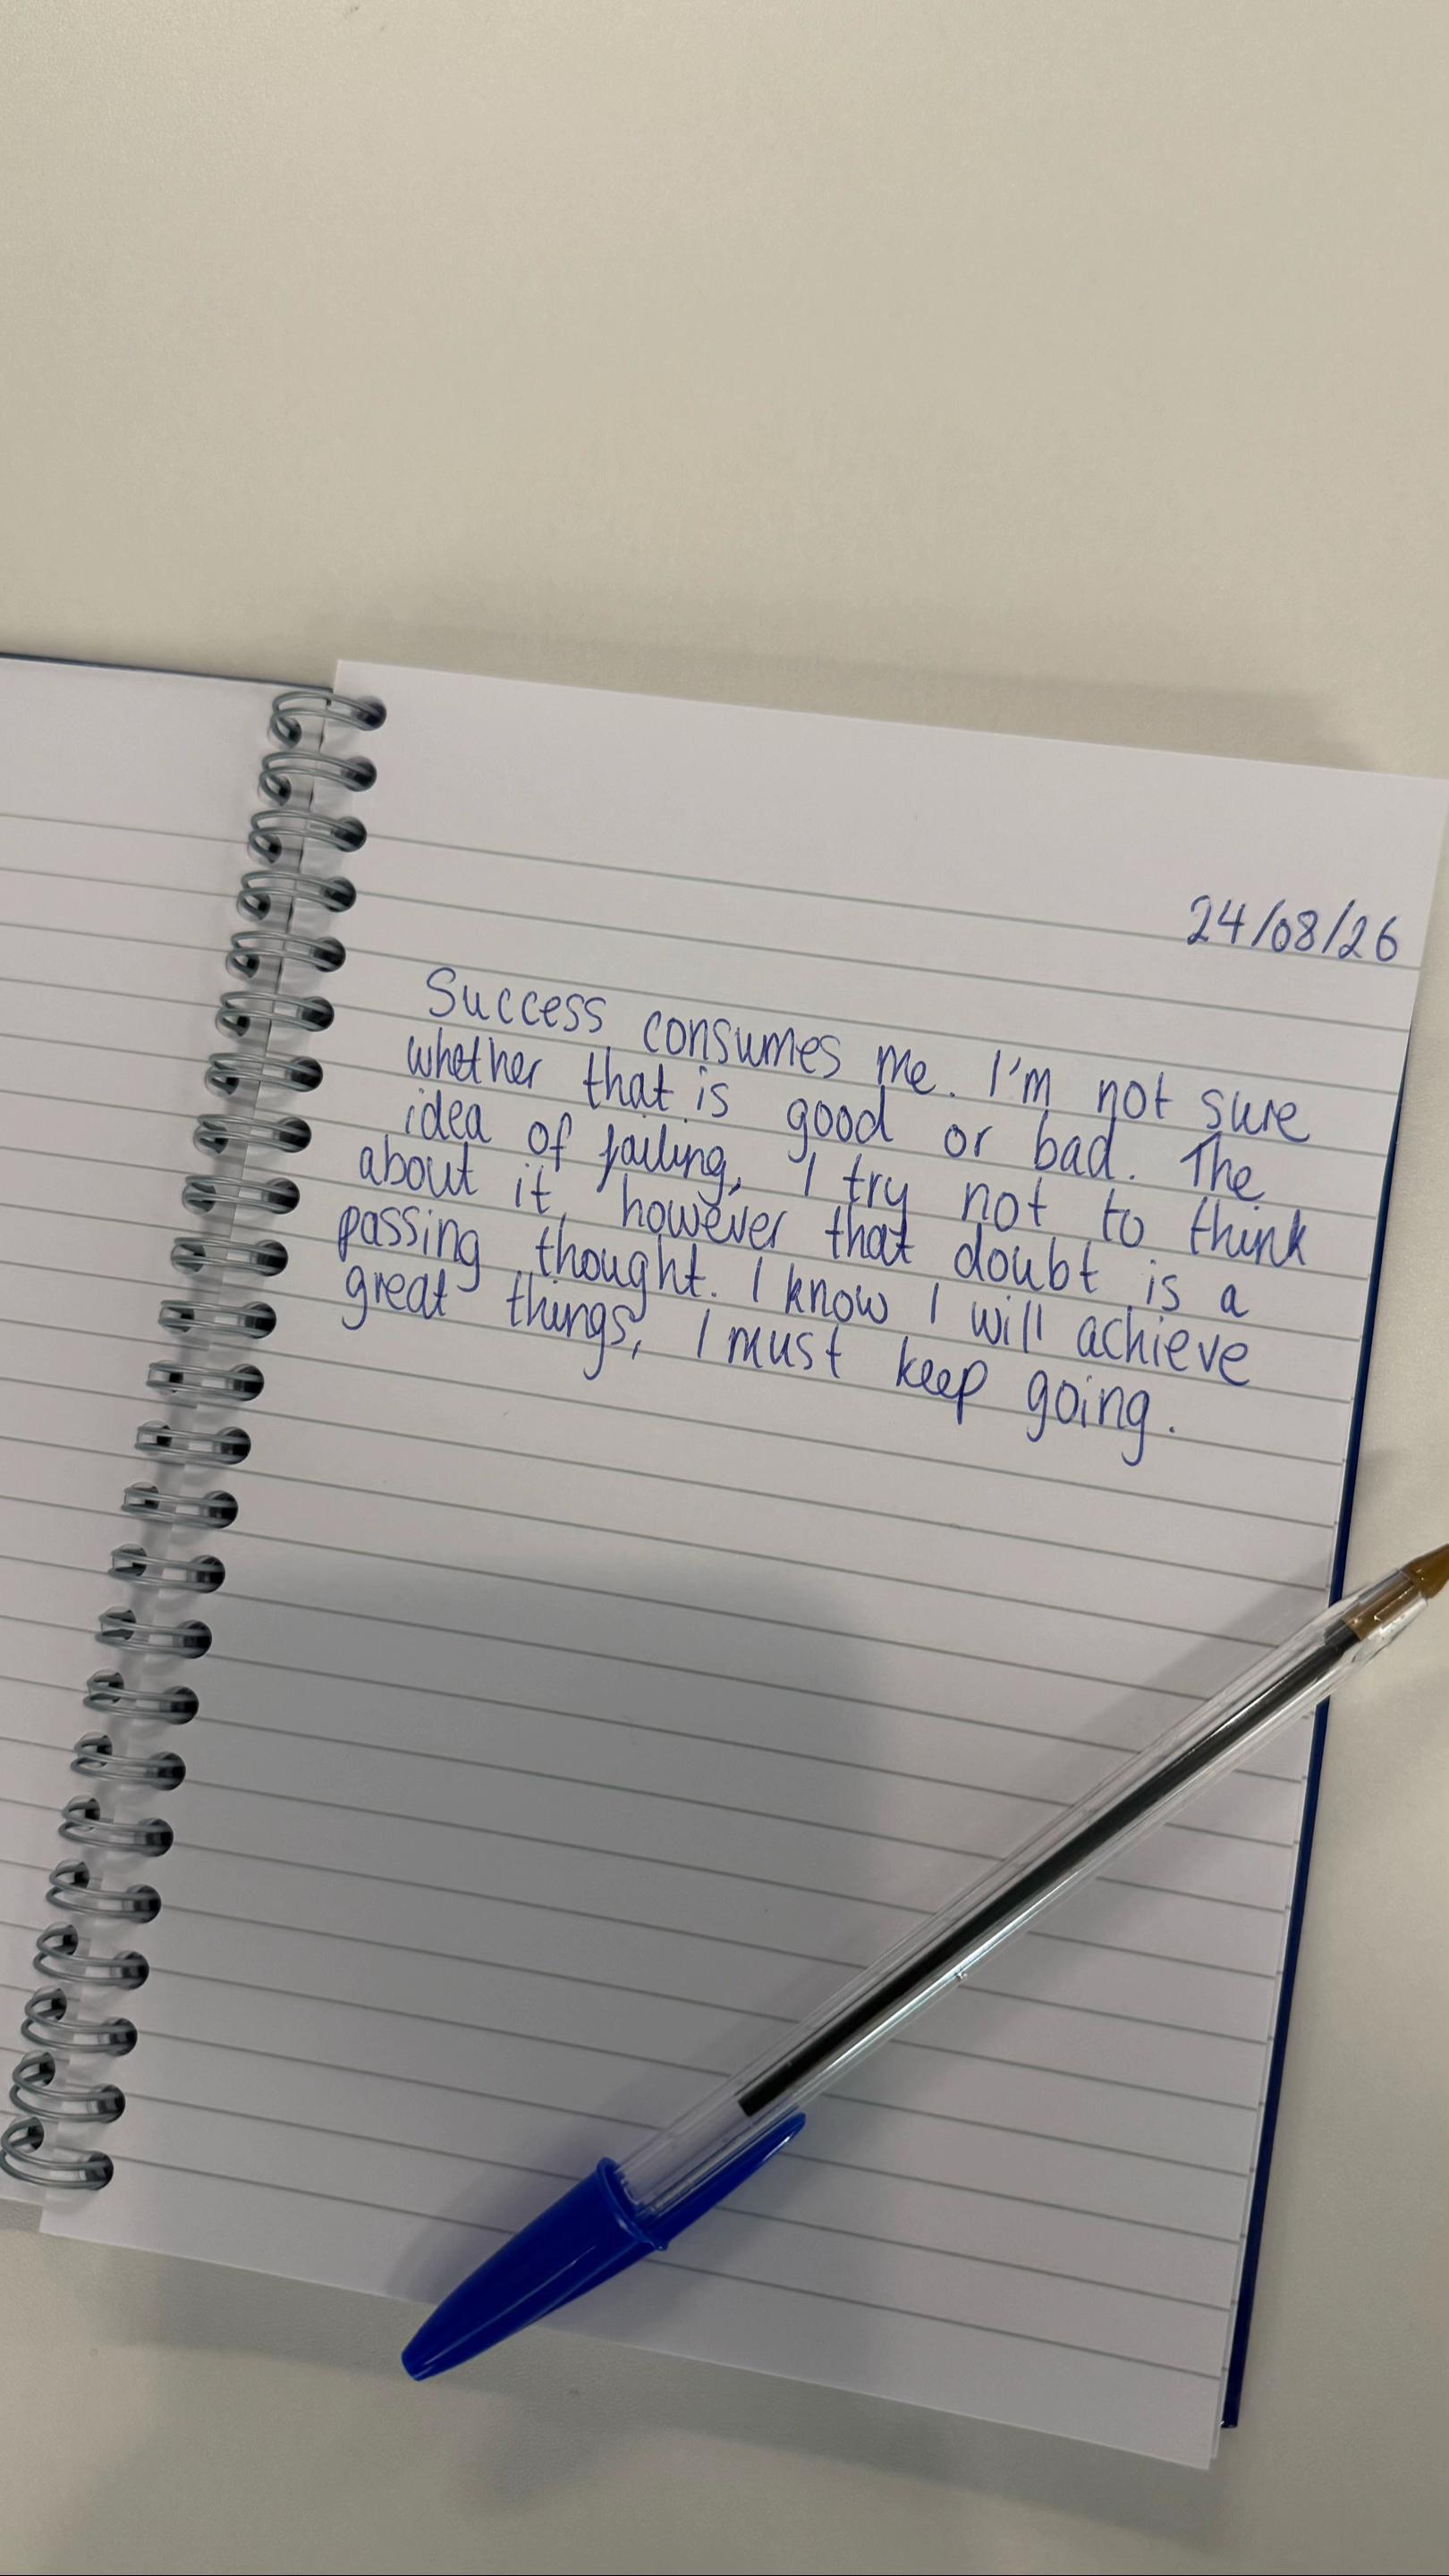 24/08/26
Success consumes me. I'm not sure
whether that is good or bad. The
idea of failing, I try not to think
about it, however that doubt is a
passing thought. I know I will achieve
great things, I must keep going.